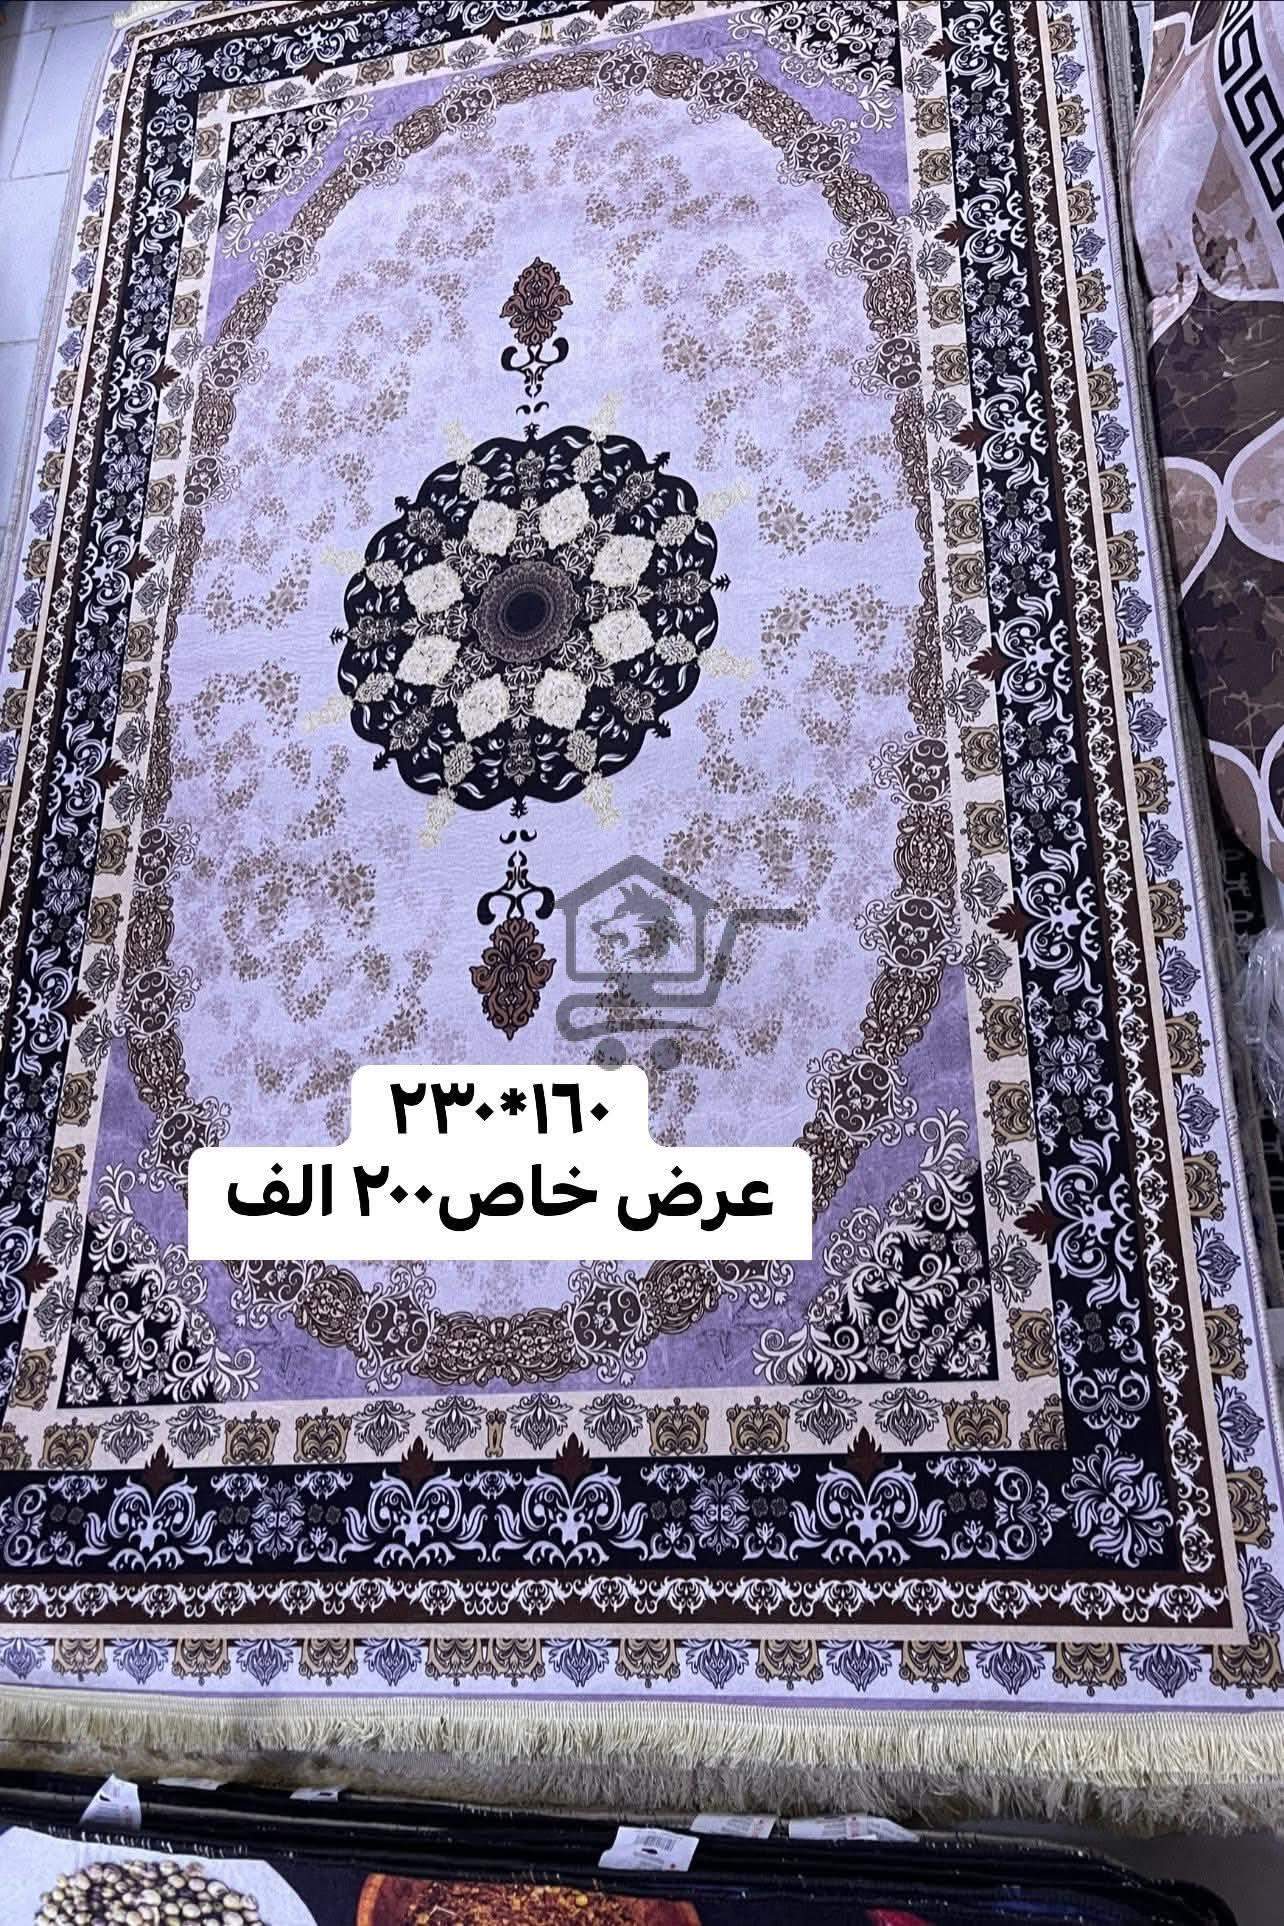 ١٦٠*٢٣٠
عرض خاص٢٠٠ الف